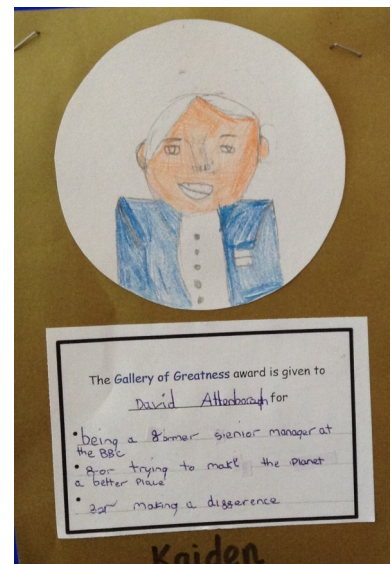 The Gallery of Greatness award is given to
David Attenborough for
• being a former sienior manager at
the BBC
• for trying to make the Planet
a better Place
• for making a difference
Kaiden